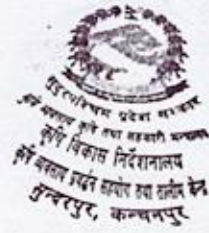 सुदूरपश्चिम प्रदेश सरकार
कृषि तथा सहकारी मन्त्रालय
कृषि विकास निर्देशनालय
कृषि व्यवसाय प्रवर्द्धन सहयोग तथा तालीम केन्द्र
सुन्दरपुर, कञ्चनपुर